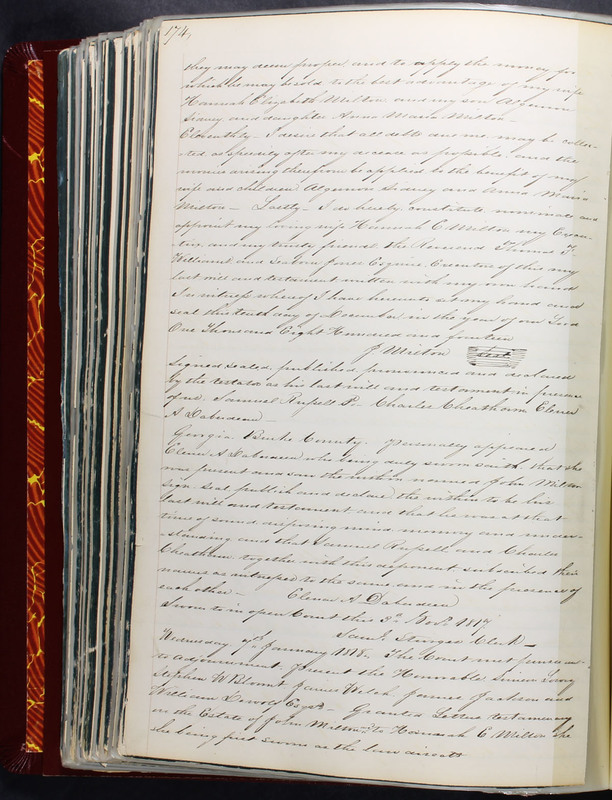 174,
they may deem proper and to apply the money for
which he may be sold to the best advantage of my wife
Hannah Elizabeth Milton and my son Algernon
Sidney and daughter Anna Maria Milton
Eleventhly – I desire that all debts due me, may be collec-
ted as speedily after my decease as possible, and the
monies arising therefrom be applied to the benefit of my
wife and children Algernon Sidney and Anna Maria
Milton – Lastly – I do hereby constitute nominate and
appoint my loving wife Hannah E Milton my Execu-
trix and my trusty friends the Reverend Thomas F.
Williams and Seaborn Jones Esquire Executors of this my
last will and testament written with my own hand
In witness whereof I have hereunto set my hand and
seal this tenth day of December in the year of our Lord
One Thousand Eight Hundred and fourteen
J Milton seal
Signed sealed, published, pronounced and declared
by the testator as his last will and testament in presence
of us. Samuel Russell Charles Cheatham Elenor
A Dabudeen –
Georgia Burke County. Personally appeared
Elenor A Dabudeen who being duly sworn saith, that she
was present and saw the within named John Milton
sign seal publish and declare the within to be his
last will and testament and that he was at that
time of sound disposing mind memory and under-
standing and that Samuel Russell and Charles
Cheatham together with this deponent subscribed their
names as witnesses to the same and in the presence of
each other – Elenor A Dabudeen
Sworn to in open Court this 3rd Novr 1817
Saml Sturges Clerk –
Wednesday 7th January 1818. The Court met pursuant
to adjournment. present the Honorable Senior Lowry
Stephen W Blount James Welch James Jackson and
William Esqrs – Granted Letters testamentary
on the Estate of John Milton to Hannah E Milton she
she being first sworn as the law directs